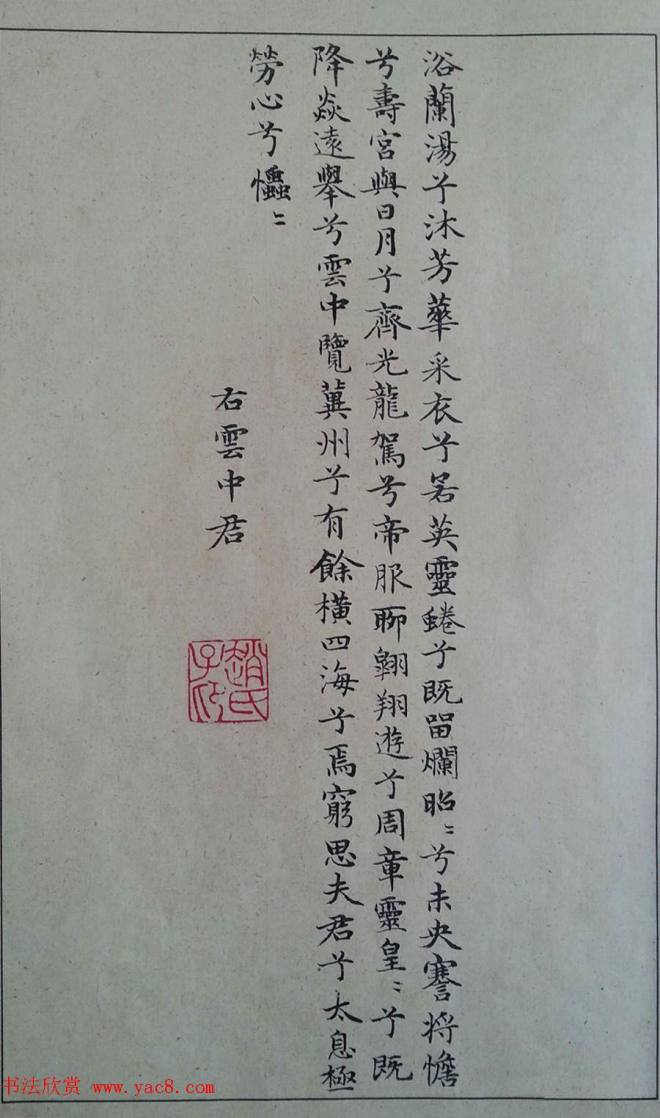 浴蘭湯兮沐芳華采衣兮若英靈蜷兮既留爛昭〻兮未央謇將憺
兮壽宮與日月兮齊光龍駕兮帝服聊翱翔遊兮周章靈皇〻兮既
降猋遠舉兮雲中覽冀州兮有餘橫四海兮焉窮思夫君兮太息極
勞心兮㦕〻
右雲中君
趙氏子
书法欣赏 www.yac8.com